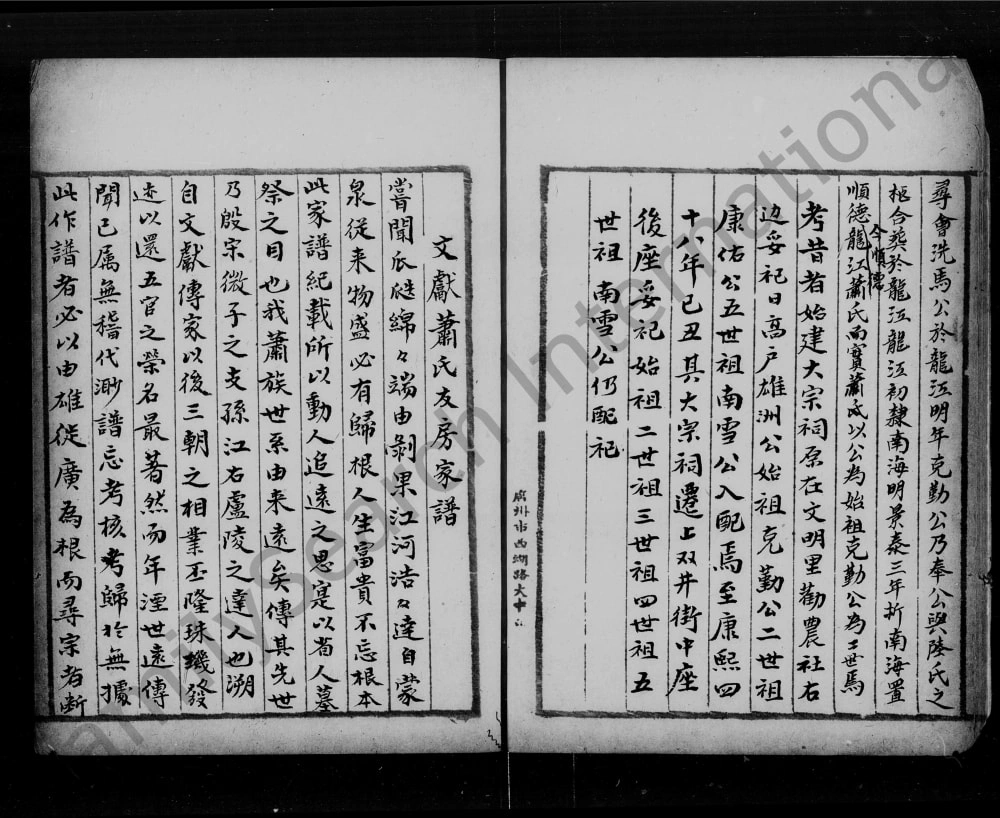 尋會洗馬公於龍江明年克勤公乃奉公與陸氏之
柩合葬於龍江龍江初隸南海明景泰三年折南海置
今順德
順德龍江蕭氏而實蕭氏以公為始祖克勤公為二世焉
考昔者始建大宗祠原在文明里勸農社右
边妥祀日高戶雄洲公始祖克勤公二世祖
康佑公五世祖南雪公入配焉至康熙四
十八年己丑其大宗祠遷上双井街中座
後座妥祀始祖二世祖三世祖四世祖五
世祖 南雪公仍配祀
廣州市西湖路大中
文獻蕭氏友房家譜
嘗聞瓜瓞綿々端由剝果江河浩々達自蒙
泉從来物盛必有歸根人生富貴不忘根本
此家譜紀載所以動人追遠之思寔以省人墓
祭之目也我蕭族世系由来遠矣傳其先世
乃殷宗微子之支孫江右盧陵之達人也溯
自文獻傳家以後三朝之相業丕隆珠璣發
迹以還五官之榮名最著然而年湮世遠傳
聞已属無稽代渺譜忘考核考歸於無據
此作譜者必以由雄徙廣為根而尋宗者断
FamilySearch International